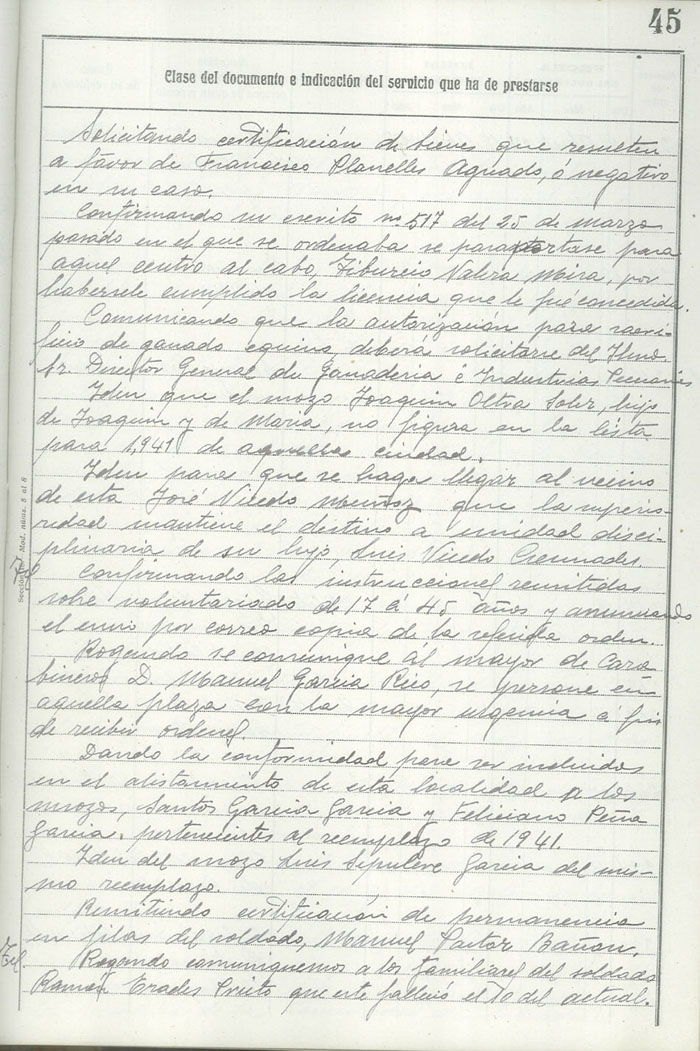 45
Clase del documento e indicación del servicio que ha de prestarse
Solicitando certificación de bienes que resulten
a favor de Francisco Planelles Aguado, ó negativo
en su caso.
Confirmando su escrito nº 517 del 25 de marzo
pasado en el que se ordenaba se para para
aquel centro al cabo, Tiburcio Valera Mira, por
habersele cumplido la licencia que le fué concedida.
Comunicando que la autorización para sacri-
ficio de ganado equino, deberá solicitarse del Ilmo.
Sr. Director General de Ganaderia é Industrias Pecuarias
Idem que el mozo Joaquin Oltra Soler, hijo
de Joaquin y de Maria, no figura en la lista
para 1,941 de aquella ciudad.
Idem para que se haga llegar al vecino
de esta José Vicedo Muñoz que la superio-
ridad mantiene el destino a unidad disci-
plinaria de su hijo, Luis Vicedo
Tel.
Confirmando las instrucciones remitidas
sobre voluntariado de 17 á 45 años y anunciando
el envio por correo copia de la referida orden.
Rogando se comunique al mayor de Cara
bineros D. Manuel Garcia Rico, se persone en
aquella plaza con la mayor urgencia á fin
de recibir ordenes.
Dando la conformidad para ser incluidos
en el alistamiento de esta localidad a los
mozos, Santos Garcia Garcia y Feliciano Peña
Garcia, pertenecientes al reemplazo de 1941.
Idem del mozo Luis Garcia del mis-
mo reemplazo.
Remitiendo certificación de permanencia
en filas del soldado, Manuel Pastor Bañon.
Tel.
Rogando comuniquemos a los familiares del soldado
Ramon que este falleció el 10 del actual.
Sección Mod. núms. 5 al 8